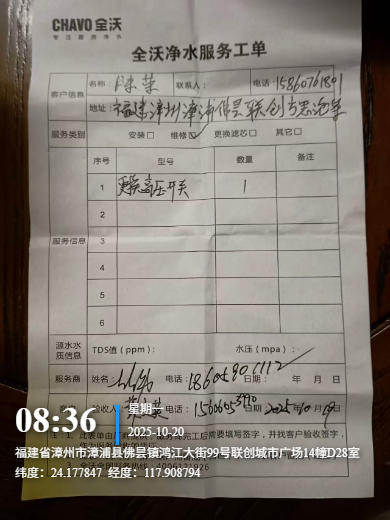 CHAVO 全沃
专注厨房净水
全沃净水服务工单
客户信息 名称: 陈荣 联系人: 电话: 15860761801
地址: 福建漳州漳浦佛昙联创
服务类别 安装☐ 维修☑ 更换滤芯☐ 其它☐
服务信息 序号 型号 数量 备注
1 更换高压开关 1
2
3
4
5
6
源水水质信息 TDS值(ppm): 水压(mpa):
服务商 姓名 电话: 18605901112 日期: 年 月 日
验收人 电话: 日期: 2025 10 19
08:36
星期一
2025-10-20
福建省漳州市漳浦县佛昙镇鸿江大街99号联创城市广场14幢D28室
纬度: 24.177847 经度: 117.908794